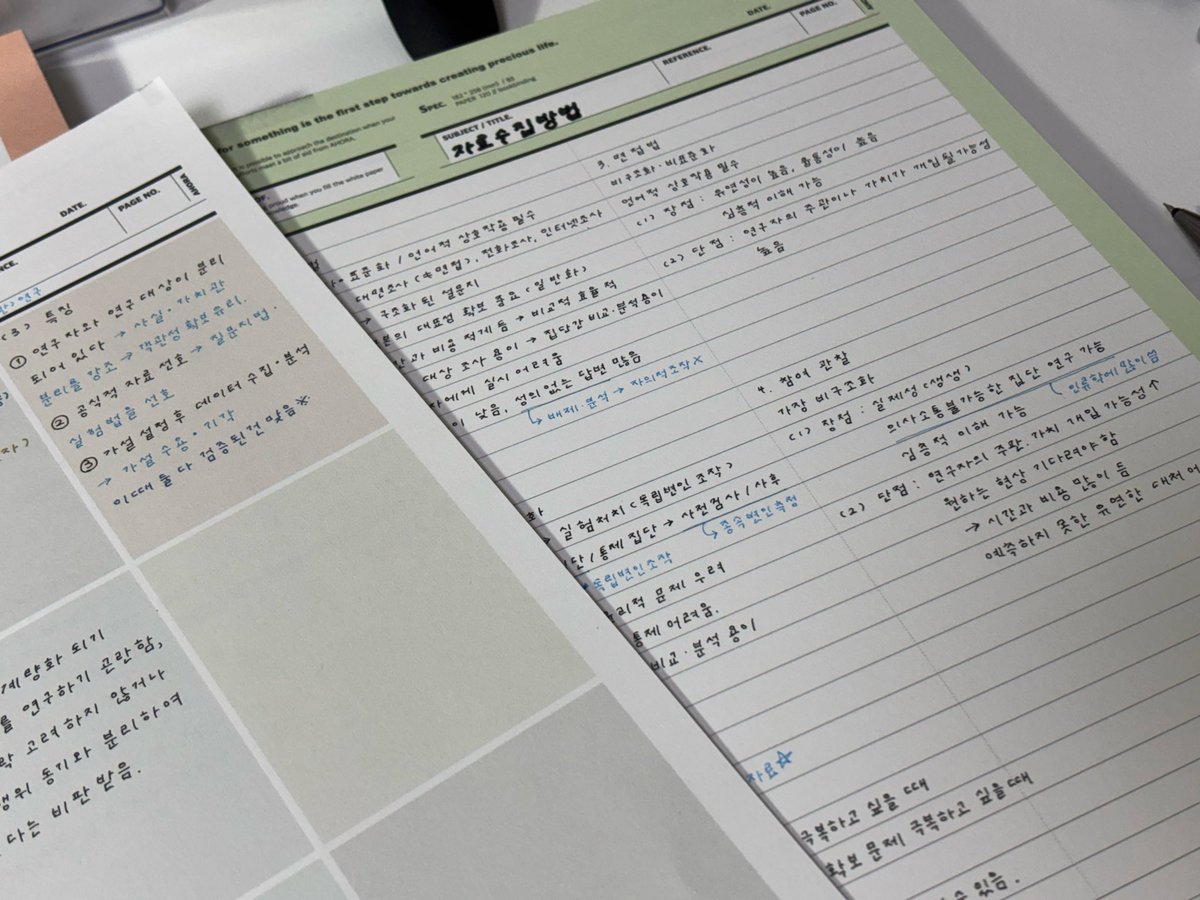 DATE.
PAGE NO.
AHORA
(3) 특징
① 연구자와 연구 대상이 분리
되어 있다 → 사실·가치관
분리를 강조 → 객관성 확보 유리.
② 공식적 자료 선호 → 질문지법.
실험법을 선호
③ 가설 설정후 데이터 수집·분석
→ 가설 수용·기각
이때 둘 다 검증된건 맞음※
계량화 되기
를 연구하기 곤란함,
락 고려하지 않거나
행위 동기와 분리하여
다는 비판 받음.
for something is the first step towards creating precious life.
is possible to approach the destination when you
meet a bit of aid from AHORA.
proud when you fill the white paper
SPEC.
182 * 258 (mm) / 65
PAPER 120 // bookbinding
DATE.
PAGE NO.
REFERENCE.
SUBJECT / TITLE.
자료수집방법
표준화 / 언어적 상호작용 필수
대면조사 (속면접), 전화조사, 인터넷조사
→ 구조화된 설문지
본의 대표성 확보 중요 (일반화)
간과 비용 적게 듬 → 비교적 효율적
대상 조사 용이 → 집단간 비교·분석용이
자에게 실시 어려움
이 낮음, 성의없는 답변 많음
배제·분석 → 자의적조작X
화
실험처치 (독립변인 조작)
단/통제 집단 → 사전검사/사후
독립변인조작
종속변인측정
리적 문제 우려
통제 어려움.
비교·분석 용이
자료☆
극복하고 싶을 때
확보 문제 극복하고 싶을때
수 있음.
3. 면접법
비구조화·비표준화
언어적 상호작용 필수
(1) 장점 : 유연성이 높음, 융통성이 높음
심층적 이해 가능
(2) 단점 : 연구자의 주관이나 가치가 개입될 가능성
높음
4. 참여 관찰
가장 비구조화
(1) 장점 : 실제성 (생생)
의사소통불가능한 집단 연구 가능
인류학에 많이 씀
심층적 이해 가능
(2) 단점 : 연구자의 주관.가치 개입 가능성↑
원하는 현상 기다려야 함
→ 시간과 비용 많이 듬
예측하지 못한 유연한 대처